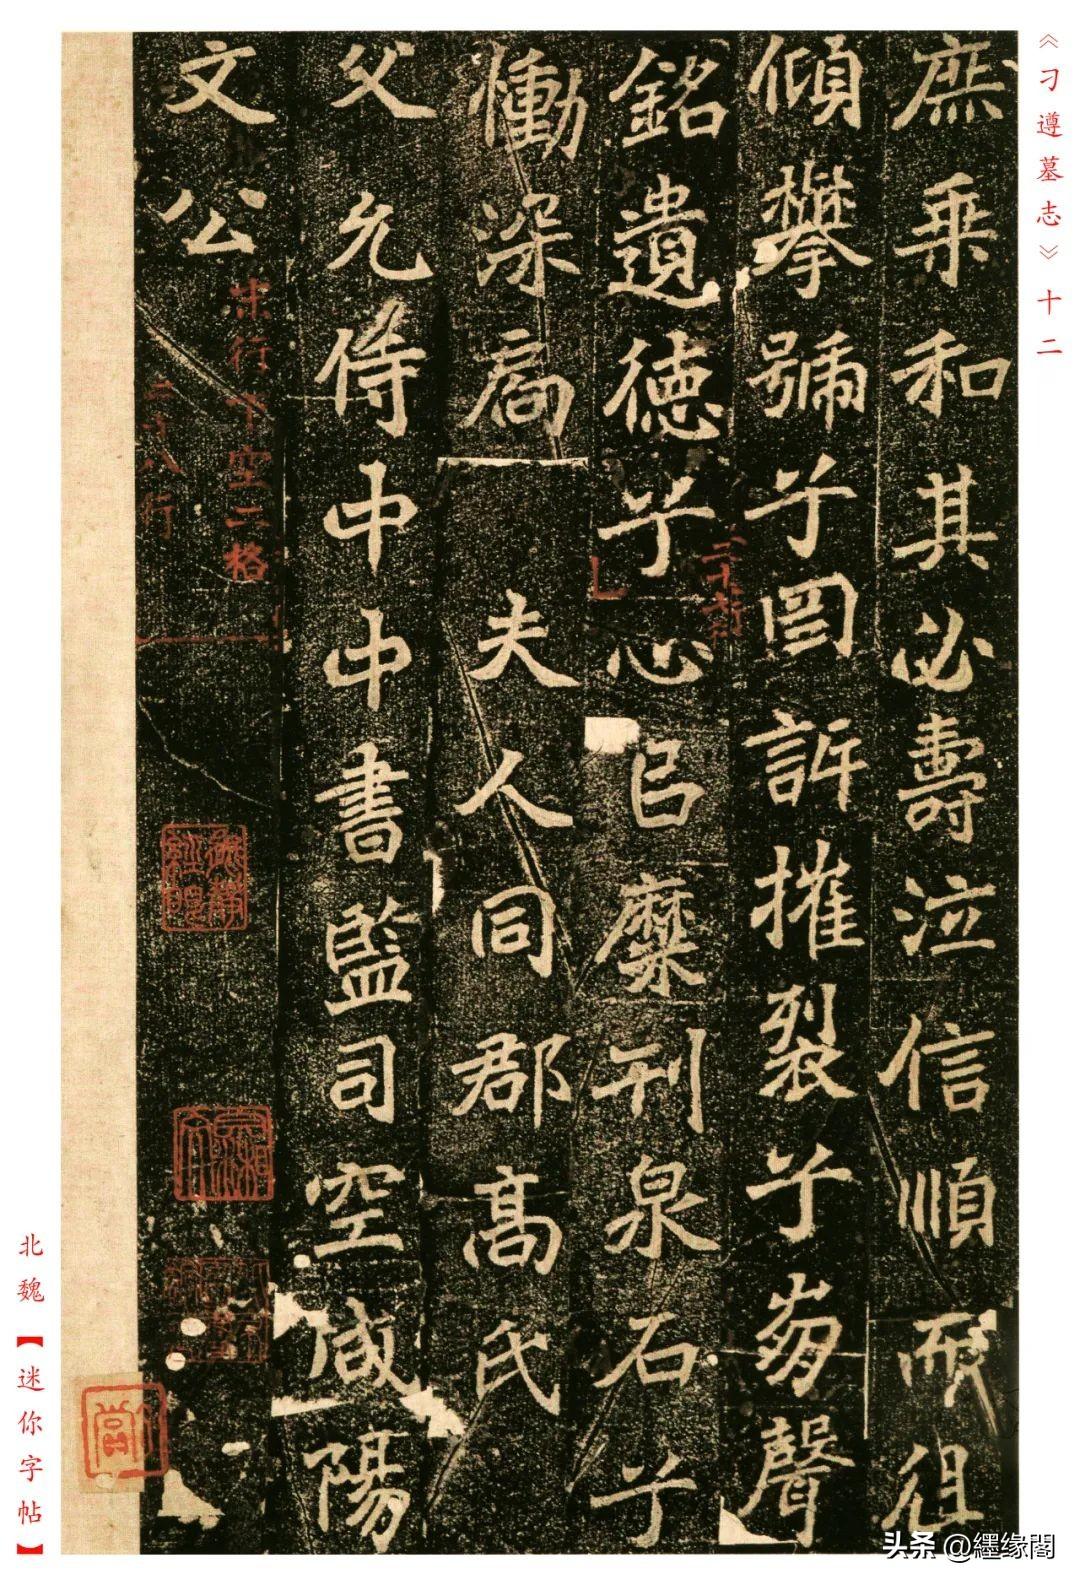 《刁遵墓志》十二
庶乘和其必壽泣信順而徂
傾攀號兮罔訴摧裂兮崩聲
銘遺德兮心已糜刊泉石兮
慟深扃 夫人同郡高氏
父允侍中中書監司空咸陽
文公
末行下空二格
二十八行
北魏【迷你字帖】
头条 @纆缘閣